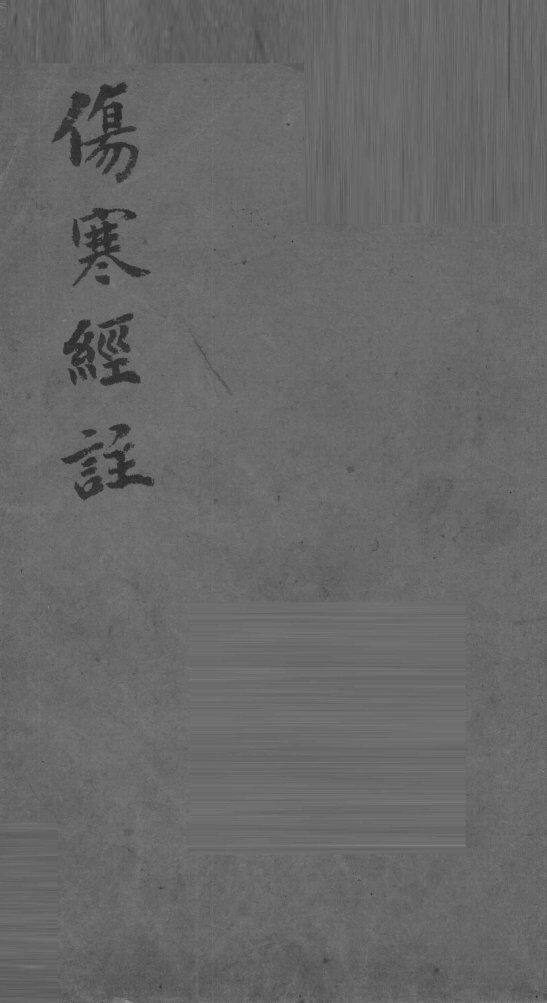 傷寒經註